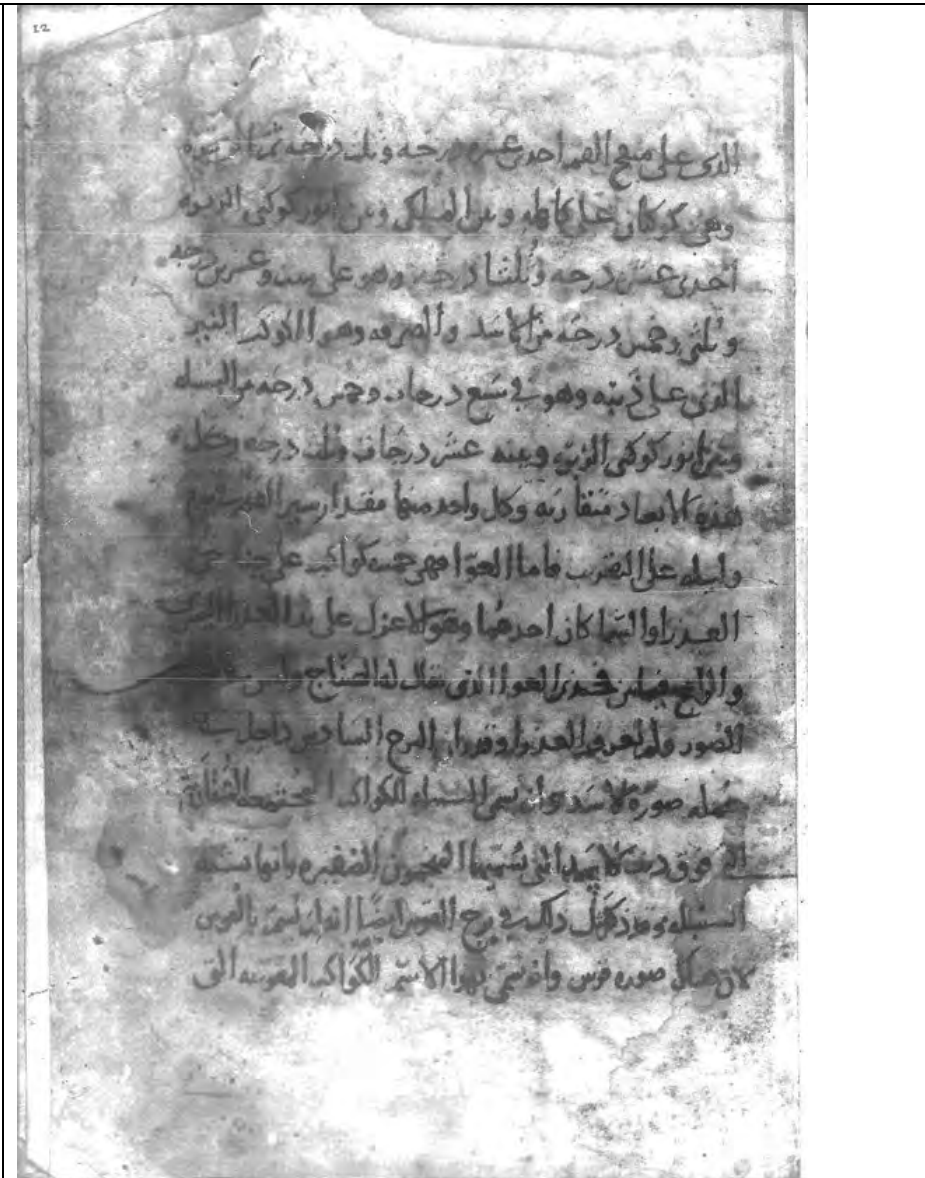 12
الذى على منفج الفم احدى عشره درجه وثلث درجه ثم الزبره
وهى كوكبان على كاهله وبين الملكى وبين انور كوكبى الزبره
احدى عشره درجه وثلثا درجه وهو على ست وعشرين درجه
وثلثى وخمس درجه من الاسد والصرفه وهو الكوكب النير
الذى على ذنبه وهو فى سبع درجات وخمس درجه من السنبله
وبين انور كوكبى الزبره وبينه عشر درجات وثلث درجه وكل
هذه الابعاد متقاربه وكل واحد منها مقدار سير القمر فى يوم
وليله على التقريب فاما العوا فهى خمسه كواكب على
العذرا والسماكان احدهما وهو الاعزل على يد العذرا اليسرى
والرامح فيما بين فخذى العوا الذى يقال له الصناج
الصور ولم تعرف العذرا وقدرا ان البرج السادس داخل فى
جمله صوره الاسد وان تسمى السنبله للكواكب المجتمعه
التى فوق ذنب الاسد التى تسميها المنجمون الضفيره بانها تشبه
السنبله وقد ذكر مثل ذلك فى برج القوس ايضا انه لم يسم بالقوس
لان هناك صوره قوس وانه سمى بهذا الاسم للكواكب المقوسه التى